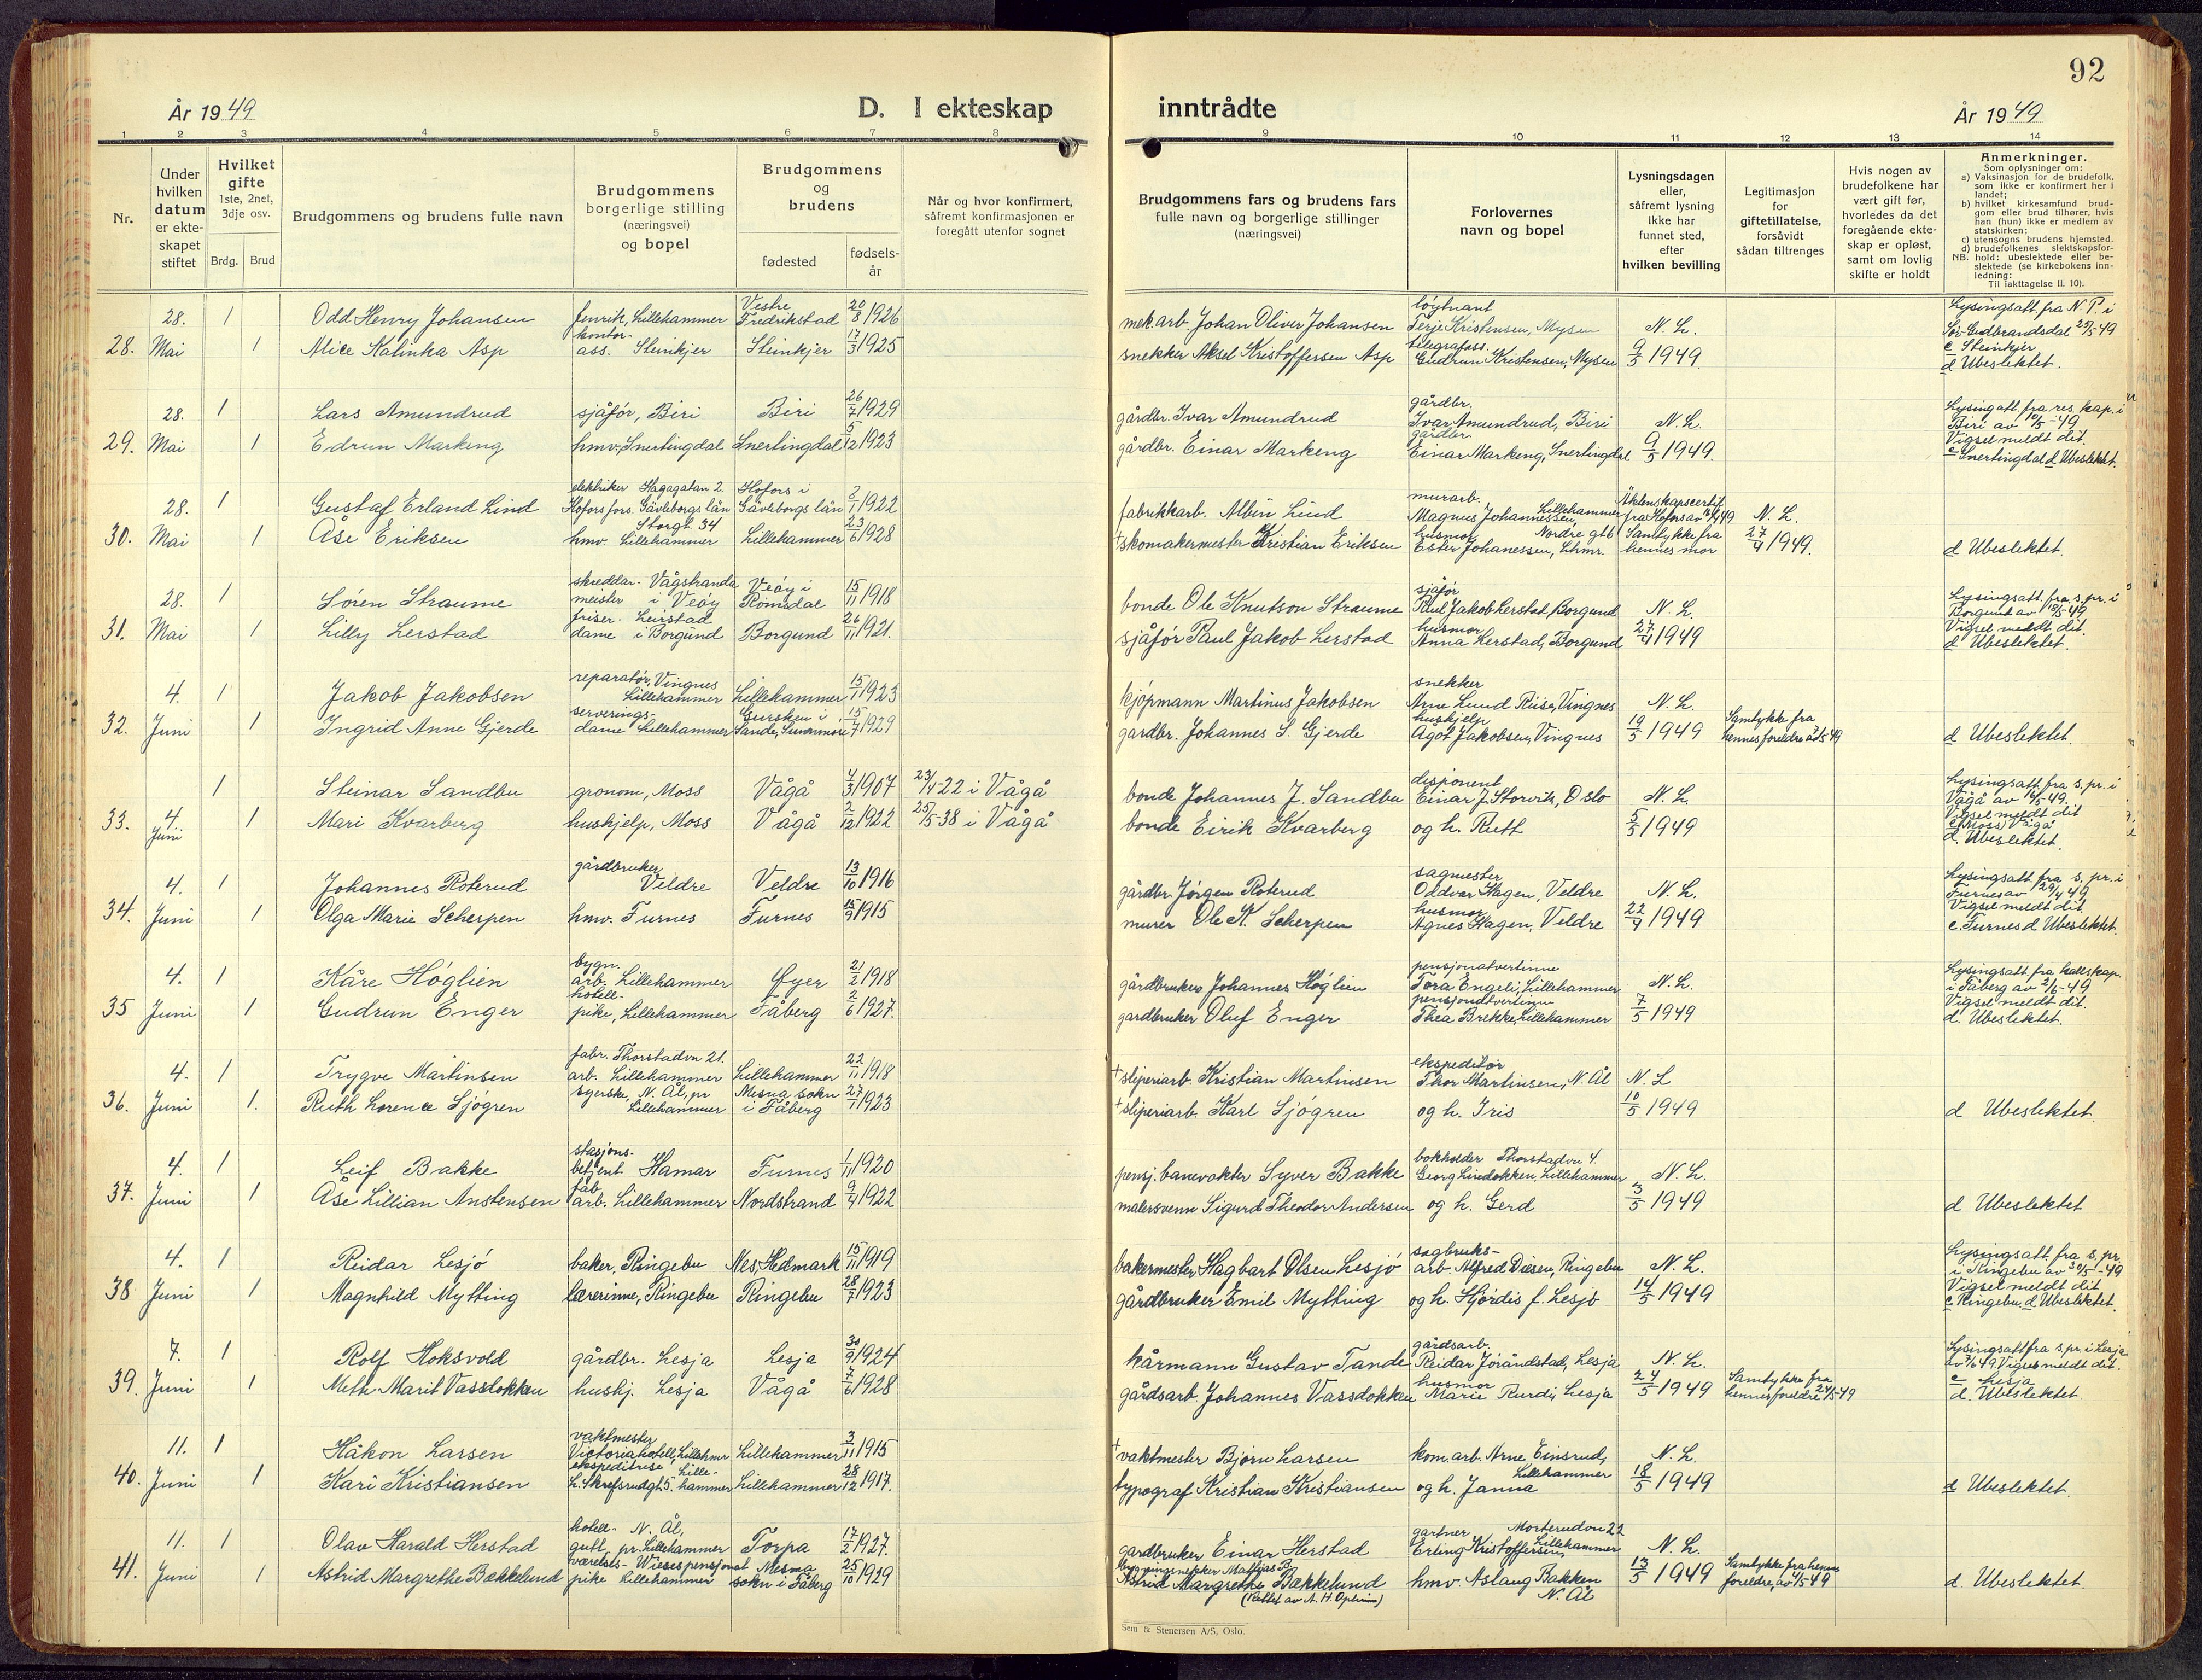 92
År 1949
D. I ekteskap
inntrådte
År 1949
1 2 3 4 5 6 7 8 9 10 11 12 13 14
Nr.
Under hvilken datum er ekteskapet stiftet
Hvilket gifte 1ste, 2net, 3dje osv.
Brdg. Brud
Brudgommens og brudens fulle navn
Brudgommens borgerlige stilling (næringsvei) og bopel
Brudgommens og brudens
fødested
fødsels-år
Når og hvor konfirmert, såfremt konfirmasjonen er foregått utenfor sognet
Brudgommens fars og brudens fars fulle navn og borgerlige stillinger (næringsvei)
Forlovernes navn og bopel
Lysningsdagen eller, såfremt lysning ikke har funnet sted, efter hvilken bevilling
Legitimasjon for giftetillatelse, forsåvidt sådan tiltrenges
Hvis nogen av brudefolkene har vært gift før, hvorledes da det foregående ekteskap er opløst, samt om lovlig skifte er holdt
Anmerkninger.
Som oplysninger om:
a) Vaksinasjon for de brudefolk, som ikke er konfirmert her i landet;
b) hvilket kirkesamfund brudgom eller brud tilhører, hvis han (hun) ikke er medlem av statskirken;
c) utensogns brudens hjemsted.
d) brudefolkenes slektskapsforhold: ubeslektede eller beslektede (se kirkebokens innledning:
NB.
Til iakttagelse II. 10).
28. 1 Odd Henry Johansen fenrik, Lillehammer Vestre Fredrikstad 20/8 1926 mek.arb. Johan Oliver Johansen løytnant Terje Kristensen, Mysen N. L. Lysingsatt. fra N. P. i Sør-Gudbrandsdal 25/5-49
28. Mai 1 Alice Kalinka Asp kontor-ass. Steinkjer Steinkjer 17/3 1925 snekker Aksel Kristoffersen Asp telegrafass. Gudrun Kristensen, Mysen 9/5 1949 c Steinkjer d Ubeslektet.
28. 1 Lars Amundrud sjåfør, Biri Biri 26/7 1929 gårdbr. Ivar Amundrud gårdbr. Ivar Amundrud, Biri N. L. Lysingatt. fra res. kap. i Biri av 10/5-49
29. Mai 1 Edrun Markeng hmv. Snertingdal Snertingdal 5/12 1923 gårdbr. Einar Markeng gårdbr. Einar Markeng, Snertingdal 9/5 1949. Vigsel meldt dit. c Snertingdal d Ubeslektet.
28. 1 Gustaf Erland Lind elektriker Hagagatan 2 Hofors fors. Gävleborgs län Hofors i Gävleborgs län 1922 fabrikkarb. Albin Lind murarb. Magnus Johannessen, Lillehammer Äktenskapscertif. fra Hofors N. L.
30. Mai 1 Åse Eriksen hmv. Storgt. 34 Lillehammer Lillehammer 23/6 1928 + skomakermester Kristian Eriksen husmor Nordre gt 6 Ester Johanessen, Lhmr. Samtykke fra hennes mor 27/4 1949. d Ubeslektet.
28. 1 Søren Straume skreddar-meister Vågstranda i Veøy Veøy i Romsdal 15/11 1918 bonde Ole Knutson Straume sjåfør Paul Jakob Lerstad, Borgund N. L. Lysingsatt. fra s. pr. i Borgund av 18/5-49
31. Mai 1 Lilly Lerstad friser-dame Leirstad i Borgund Borgund 26/11 1921. sjåfør Paul Jakob Lerstad husmor Anna Lerstad, Borgund 27/4 1949 Vigsel meldt dit. d Ubeslektet.
4. 1 Jakob Jakobsen reparatør, Vingnes Lillehammer Lillehammer 15/1 1923 kjøpmann Martinus Jakobsen snekker Arne Lund Riise, Vingnes N. L.
32. Juni 1 Ingrid Anne Gjerde serverings-dame Lillehammer Gursken i Sande, Sunnmøre 15/7 1929 gardbr. Johannes S. Gjerde huskjelp Agot Jakobsen, Vingnes 19/5 1949 Samtykke fra hennes foreldre d Ubeslektet.
1 Steinar Sandbu gronom, Moss Vågå 4/3 1907 23/4-22 i Vågå bonde Johannes J. Sandbu disponent Einar J. Storvik, Oslo N. L. Lysingsatt. fra s. pr. i Vågå av 16/5-49.
33. 4. Juni 1 Mari Kvarberg huskjelp, Moss Vågå 2/12 1922 25/5-38 i Vågå bonde Eirik Kvarberg og h. Ruth 5/5 1949 Vigsel meldt dit c (Moss) Vågå d. Ubeslektet.
4. 1 Johannes Roterud gårdbruker Veldre Veldre 13/10 1916 gårdbr. Jørgen Roterud sagmester Oddvar Hagen, Veldre N. L. Lysingsatt. fra s. pr. i Furnes av 29/4 49
34. Juni 1 Olga Marie Scherpen hmv. Furnes Furnes 15/9 1915 murer Ole K. Scherpen husmor Agnes Hagen, Veldre 22/4 1949 Vigsel meldt dit. c. Furnes d Ubeslektet.
4. 1 Kåre Høglien bygn. arb. Lillehammer Øyer 21/2 1918 gårdbruker Johannes Høglien pensjonatvertinne Tora Engeli, Lillehammer N. L. Lysingsatt. fra kallskap. i Fåberg av 2/6-49
35 Juni 1 Gudrun Enger hotell-pike, Lillehammer Fåberg 2/6 1927. gardbruker Oluf Enger pensjonatvertinne Thea Brekke, Lillehammer 7/5 1949 Vigsel meldt dit. d. Ubeslektet.
4. 1 Trygve Martinsen fabr. arb. Thorstadvn 21. Lillehammer Lillehammer 22/11 1918 + sliperiarb. Kristian Martinsen ekspeditør Thor Martinsen, N. Ål N. L
36. Juni 1. Ruth Lorence Sjøgren syerske, N. Ål, pr Lillehammer Mesna sokn i Fåberg 27/1 1923 + sliperiarb. Karl Sjøgren og h. Iris 10/5 1949 d Ubeslektet.
4. 1 Leif Bakke stasjons-betjent Hamar Furnes 1/11 1920 pensj. banevokter Syver Bakke bokholder Thorstadvn 4. Georg Lindløkken, Lillehammer N. L.
37. Juni 1 Åse Lillian Anstensen fab. arb. Lillehammer Nordstrand 9/4 1922 malersvenn Sigurd Theodor Andersen og h. Gerd 3/5 1949 d Ubeslektet
4. 1 Reidar Lesjø baker, Ringebu Nes, Hedmark 15/11 1919 bakermester Hagbart Olsen Lesjø sagbruks-arb. Alfred Diesen, Ringebu N. L. Lysingsatt. fra s. pr. i Ringebu av 30/5-49
38 Juni 1 Magnhild Mytting lærerinne, Ringebu Ringebu 28/7 1923 gårdbruker Emil Mytting og h. Hjørdis f. Lesjø 14/5 1949 Vigsel meldt dit c Ringebu, d Ubeslektet.
7. 1 Rolf Hoksvold gårdbr. Lesja Lesja 30/9 1924 kårmann Gustav Tande gårdsarb. Reidar Jorandstad, Lesja N. L. Lysingsatt fra s. pr. i Lesja Vigsel meldt dit.
39. Juni 1 Meth Marit Vassdokken huskj. Lesja Vågå 7/6 1928 gårdsarb. Johannes Vassdokken husmor Marie Rurdi, Lesja 24/5 1949 Samtykke fra hennes foreldre 24/5-49 c Lesja d. Ubeslektet.
11. 1 Håkon Larsen vaktmester Victoria hotell, Lillehmer Lillehammer 3/11 1915 + vaktmester Bjørn Larsen kom. arb. Arne Einsrud, Lillehammer N. L.
40. Juni 1 Kari Kristiansen ekspeditrise L. Skrefsrudgt. 5. Lillehammer Lillehammer 28/12 1917. typograf Kristian Kristiansen og h. Janna 18/5 1949 d Ubeslektet.
11. 1 Olav Harald Herstad hotell-gutt, N. Ål, pr. Lillehammer Torpa 17/2 1927. gardbruker Einar Herstad gartner Mosterudvn 22 Erling Kristoffersen, Lillehammer N. L.
41. Juni 1 Astrid Margrethe Bækkelund værelsespike Wieses pensjonat Lillehammer Mesna sokn i Fåberg 25/10 1929 Bygningsnekker Mathias B. Astrid Margrethe Bækkelund hmv. Aslaug Bakken N. Ål 13/5 1949 Samtykke fra hennes foreldre, av 4/5-49 d. Ubeslektet.
Sem & Stenersen A/S, Oslo.